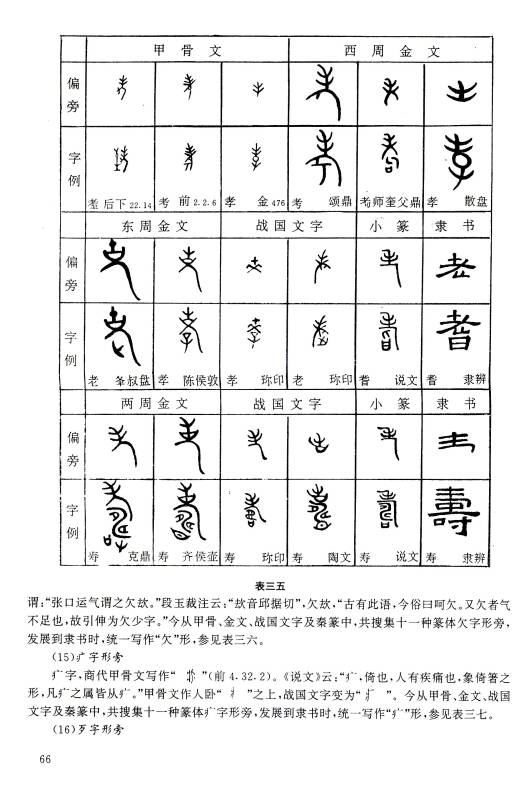 甲骨文 西周金文
偏旁
字例
耊 后下22.14 考 前2.2.6 孝 金476 考 颂鼎 耂师奎父鼎 孝 散盘
东周金文 战国文字 小篆 隶书
偏旁
字例
老 夆叔盘 孝 陈侯敦 孝 珎印 老 珎印 耆 说文 耆 隶辨
两周金文 战国文字 小篆 隶书
偏旁
字例
壽
寿 克鼎 寿 齐侯壶 寿 珎印 寿 陶文 寿 说文 寿 隶辨
表三五
谓:“张口运气谓之欠故。”段玉裁注云:“㰦音邱据切”,欠㰦,“古有此语,今俗曰呵欠。又欠者气
不足也,故引伸为欠少字。”今从甲骨、金文、战国文字及秦篆中,共搜集十一种篆体欠字形旁,
发展到隶书时,统一写作“欠”形,参见表三六。
(15)疒字形旁
疒字,商代甲骨文写作“ ”(前4.32.2)。《说文》云:“疒,倚也,人有疾痛也,象倚箸之
形,凡疒之属皆从疒。”甲骨文作人卧“ ”之上,战国文字变为“ ”。今从甲骨、金文、战国
文字及秦篆中,共搜集十一种篆体疒字形旁,发展到隶书时,统一写作“疒”形,参见表三七。
(16)歹字形旁
66